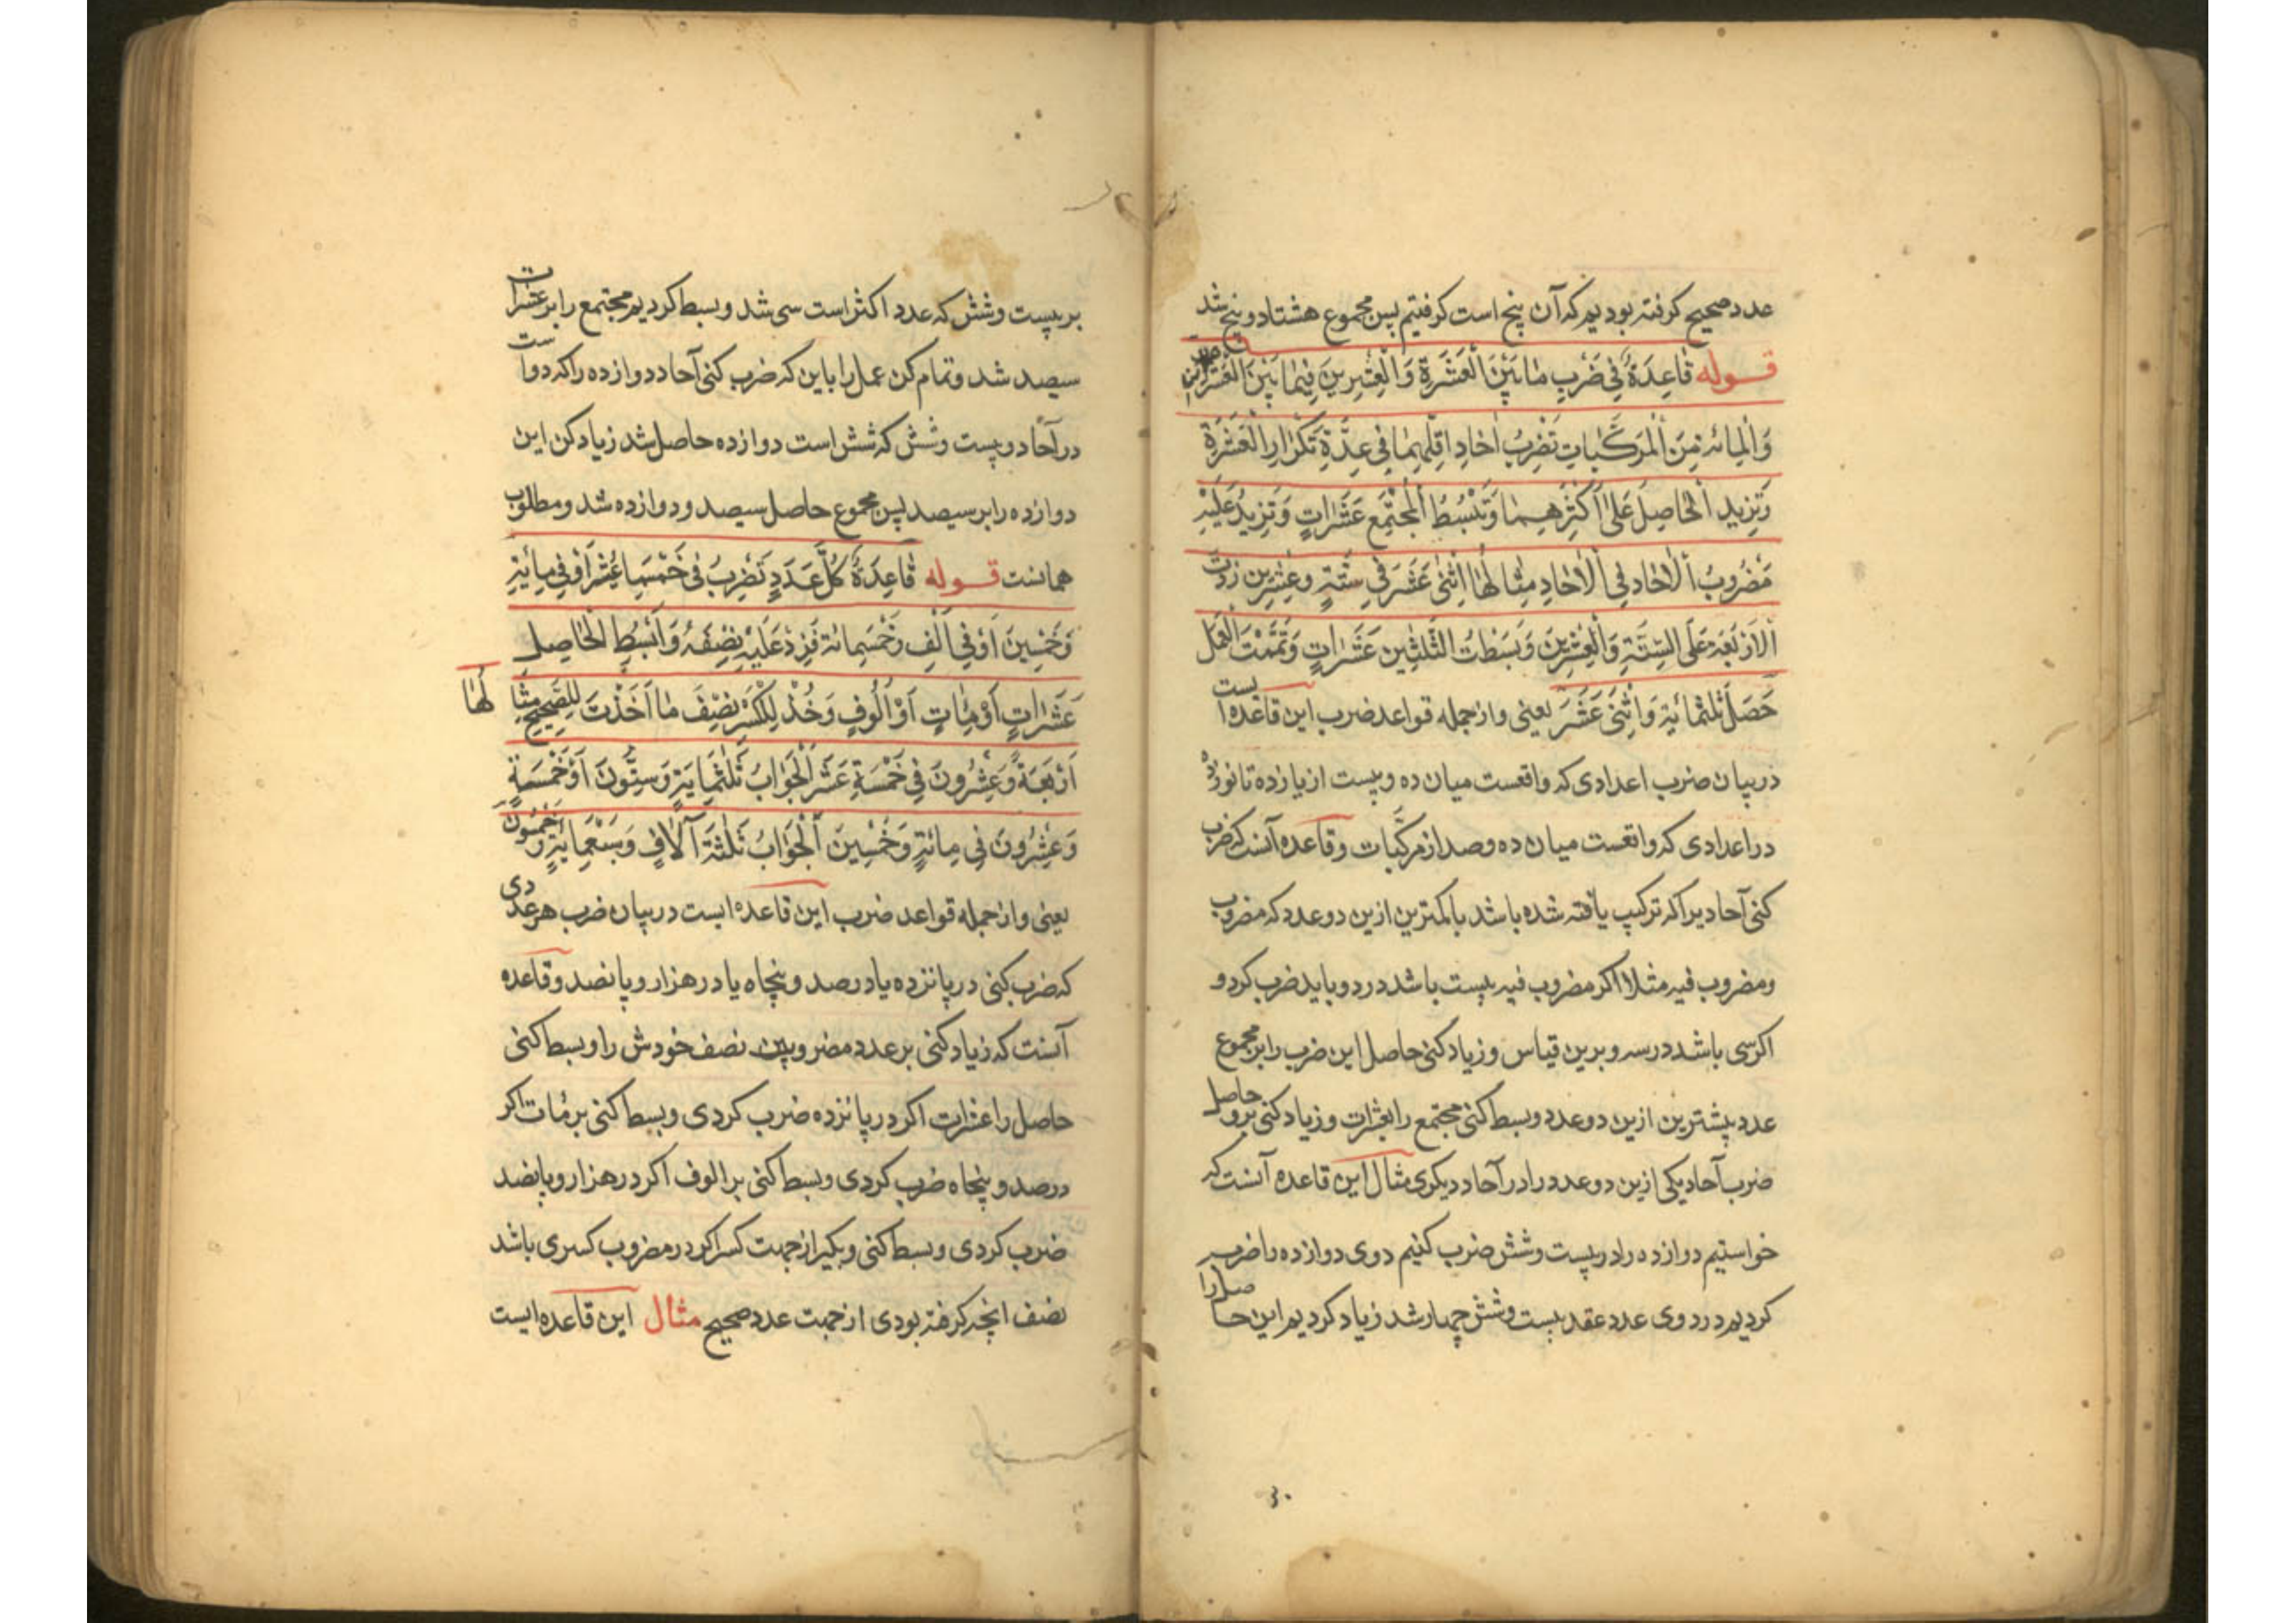 عدد صحیح کرفته بودیم که آن پنج است کرفتیم پس مجموع هشتاد و پنج شد
قوله قٰاعِدَةٌ فی ضَرْبِ مٰا بَیْنَ الْعَشَرَةِ وَ الْعِشْرِینَ فِیمٰا بَیْنَ الْعَشَرَةِ
وَ الْمِائه مِنَ الْمُرَکَّبٰاتِ تَضْرِبُ اٰحٰادِ اقلّهِمٰا فی عِدَّةِ تَکْرٰارِ الْعَشَرَةِ
وَ تَزِید الْحٰاصِلَ عَلیٰ اَکْثَرِهِمٰا وَ تَبْسُطُ الْمُجْتَمِعَ عَشَرٰاتٍ وَ تَزِیدُ عَلَیْهِ
مَضْرُوبُ الْاٰحٰاد فِی الْاٰحٰادِ مِثٰالهٰا اِثْنیٰ عَشَرَ فی سِتَّةٍ و عِشْرِین زِدْتَ
الْاَرْبَعَة عَلَی السِّتَّةِ وَ الْعِشْرِینَ وَ بَسَطْتُ الثَّلٰثِینَ عَشَرٰاتٍ وَ تَمَّمْتَ الْعَمَل
حَصَلَ ثَلٰثُمِائَةِ وَ اثْنیٰ عَشَرَ یعنی و از جمله قواعد ضرب این قاعده ایست
در بیان ضرب اعدادی که واقعست میان ده و بیست از یازده تا نوزده
در اعدادی که واقعست میان ده و صد از مرکّبات و قاعده آنست که ضرب
کنی آحادیرا که ترکیب یافته شده باشد با کمترین ازین دو عدد که مضروب
و مضروب فیه مثلا اکر مضروب فیه بیست باشد در دو باید ضرب کرد و
اکر سی باشد در سه و برین قیاس و زیاد کنی حاصل این ضرب را بر مجموع
عدد بیشترین ازین دو عدد و بسط کنی مجتمع را بعشرات و زیاد کنی برو حاصل
ضرب آحاد یکی ازین دو عدد را در آحاد دیکری مثال این قاعده آنست که
خواستیم دوازده را در بیست و شش ضرب کنیم دوی دوازده را ضرب
کردیم در دوی عدد عقد بیست و شش چهار شد زیاد کردیم این حاصل را
۳۰
بر بیست و شش که عدد اکثر است سی شد و بسط کردیم مجتمع را بر عشرات
سیصد شد و تمام کن عمل را باین که ضرب کنی آحاد دوازده را که دو است
در آحاد و بیست و شش که شش است دوازده حاصل شد زیاد کن این
دوازده را بر سیصد پس مجموع حاصل سیصد و دوازده شد و مطلوب
همانست قوله قٰاعِدَةٌ کُلُّ عَدَدٍ تَضْرِبُ فی خَمْسَةَ عَشَرَ اَوْ فی مِائَةٍ
وَ خَمْسِینَ اَوْ فی اَلْفِ وَ خَمْسَمِائة فَزِدْ عَلَیْهِ نِصْفَهُ وَ اَبْسُطِ الْحٰاصِلِ
عَشَرٰاتٍ اَوْ مِاٰتٍ اَوْ اُلُوفٍ وَ خُذْ لِلْکَسْرِ نِصْفَ مٰا اَخَذْتَ لِلصَّحِیحِ مِثٰالهٰا
اَرْبَعَةٌ وَ عِشْرُونَ فی خَمْسَةِ عَشَرَ اَلْجَوٰابُ ثَلٰثُمِایَةٍ وَ سِتُّونَ اَوْ خَمْسَةٍ
وَ عِشْرُونَ فی مِائَةٍ وَ خَمْسِینَ اَلْجَوٰابُ ثَلٰثَةَ آلٰافٍ وَ سَبْعُمِایَةٍ وَ خَمْسُونَ
یعنی و از جمله قواعد ضرب این قاعده ایست در بیان ضرب هر عددی
که ضرب کنی در پانزده یا در صد و پنجاه یا در هزار و پانصد و قاعده
آنست که زیاد کنی بر عدد مضروبین نصف خودش را و بسط کنی
حاصل را عشرات اکر در پانزده ضرب کردی و بسط کنی بر مٔات اکر
در صد و پنجاه ضرب کردی و بسط کنی بر الوف اکر در هزار و پانصد
ضرب کردی و بسط کنی و بکیر از جهت کسر اکر در مضروب کسری باشد
نصف انچه کرفته بودی از جهت عدد صحیح مثال این قاعده ایست